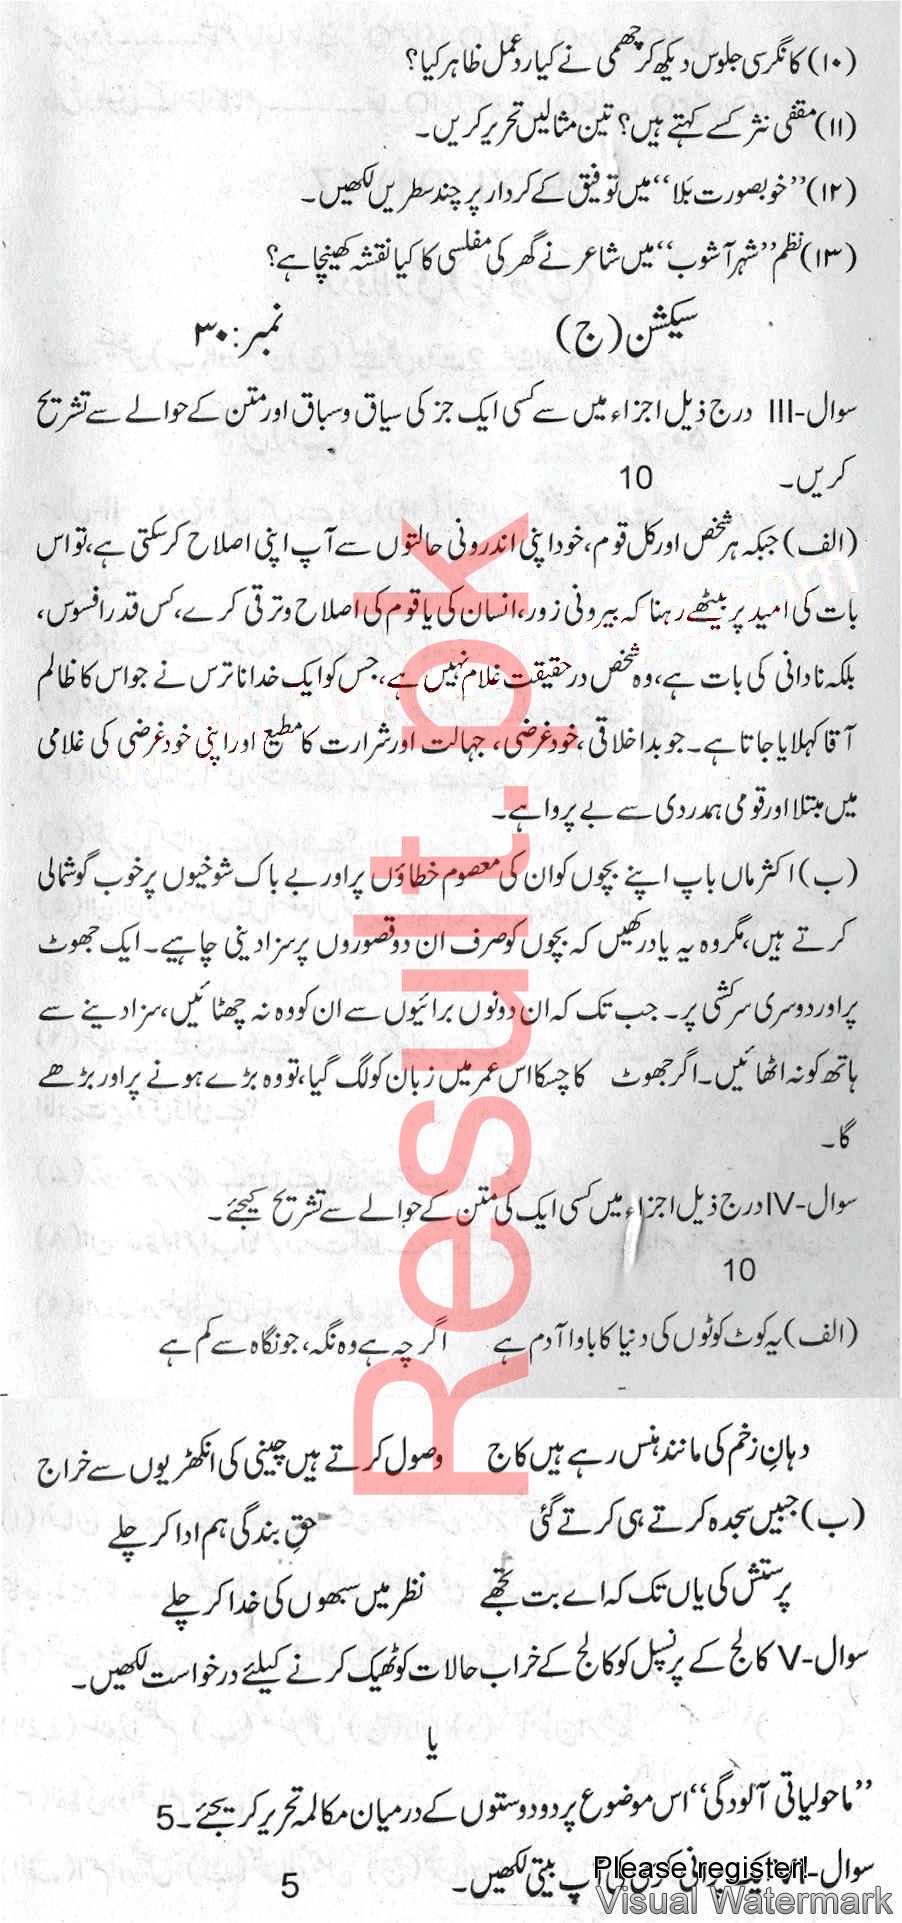 (۱۰) کانگرسی جلوس دیکھ کر چھمی نے کیا ردعمل ظاہر کیا؟
(۱۱) مقفی نثر کسے کہتے ہیں؟ تین مثالیں تحریر کریں۔
(۱۲) ”خوبصورت بَلا“ میں توفیق کے کردار پر چند سطریں لکھیں۔
(۱۳) نظم ”شہر آشوب“ میں شاعر نے گھر کی مفلسی کا کیا نقشہ کھینچا ہے؟
سیکشن (ج) نمبر: ۳۰
سوال-III درج ذیل اجزاء میں سے کسی ایک جز کی سیاق و سباق اور متن کے حوالے سے تشریح
کریں۔ 10
(الف) جبکہ ہر شخص اور کل قوم، خود اپنی اندرونی حالتوں سے آپ اپنی اصلاح کر سکتی ہے، تو اس
بات کی امید پر بیٹھے رہنا کہ بیرونی زور، انسان کی یا قوم کی اصلاح و ترقی کرے، کس قدر افسوس،
بلکہ نادانی کی بات ہے، وہ شخص درحقیقت غلام نہیں ہے، جس کو ایک خدا ناترس نے جو اس کا ظالم
آقا کہلایا جاتا ہے۔ جو بداخلاقی، خود غرضی، جہالت اور شرارت کا مطیع اور اپنی خود غرضی کی غلامی
میں مبتلا اور قومی ہمدردی سے بے پروا ہے۔
(ب) اکثر ماں باپ اپنے بچوں کو ان کی معصوم خطاؤں پر اور بے باک شوخیوں پر خوب گوشمالی
کرتے ہیں، مگر وہ یہ یاد رکھیں کہ بچوں کو صرف ان دو قصوروں پر سزا دینی چاہیے۔ ایک جھوٹ
پر اور دوسری سرکشی پر۔ جب تک کہ ان دونوں برائیوں سے ان کو وہ نہ چھٹائیں، سزا دینے سے
ہاتھ کو نہ اٹھائیں۔ اگر جھوٹ کا چسکا اس عمر میں زبان کو لگ گیا، تو وہ بڑے ہونے پر اور بڑھے
گا۔
سوال-IV درج ذیل اجزاء میں کسی ایک کی متن کے حوالے سے تشریح کیجئے۔
10
(الف) یہ کوٹ کوٹوں کی دنیا کا باوا آدم ہے اگرچہ ہے وہ نگہ، جو نگاہ سے کم ہے
دہانِ زخم کی مانند ہنس رہے ہیں کاج وصول کرتے ہیں چینی کی انکھڑیوں سے خراج
(ب) جبیں سجدہ کرتے ہی کرتے گئی حقِ بندگی ہم ادا کر چلے
پرستش کی یاں تک کہ اے بت تجھے نظر میں سبھوں کی خدا کر چلے
سوال-V کالج کے پرنسپل کو کالج کے خراب حالات کو ٹھیک کرنے کیلئے درخواست لکھیں۔
یا
”ماحولیاتی آلودگی“ اس موضوع پر دو دوستوں کے درمیان مکالمہ تحریر کریجئے۔ 5
سوال- پرانی کرسی کی آپ بیتی لکھیں۔ 5
Result.pk
Please register!
Visual Watermark